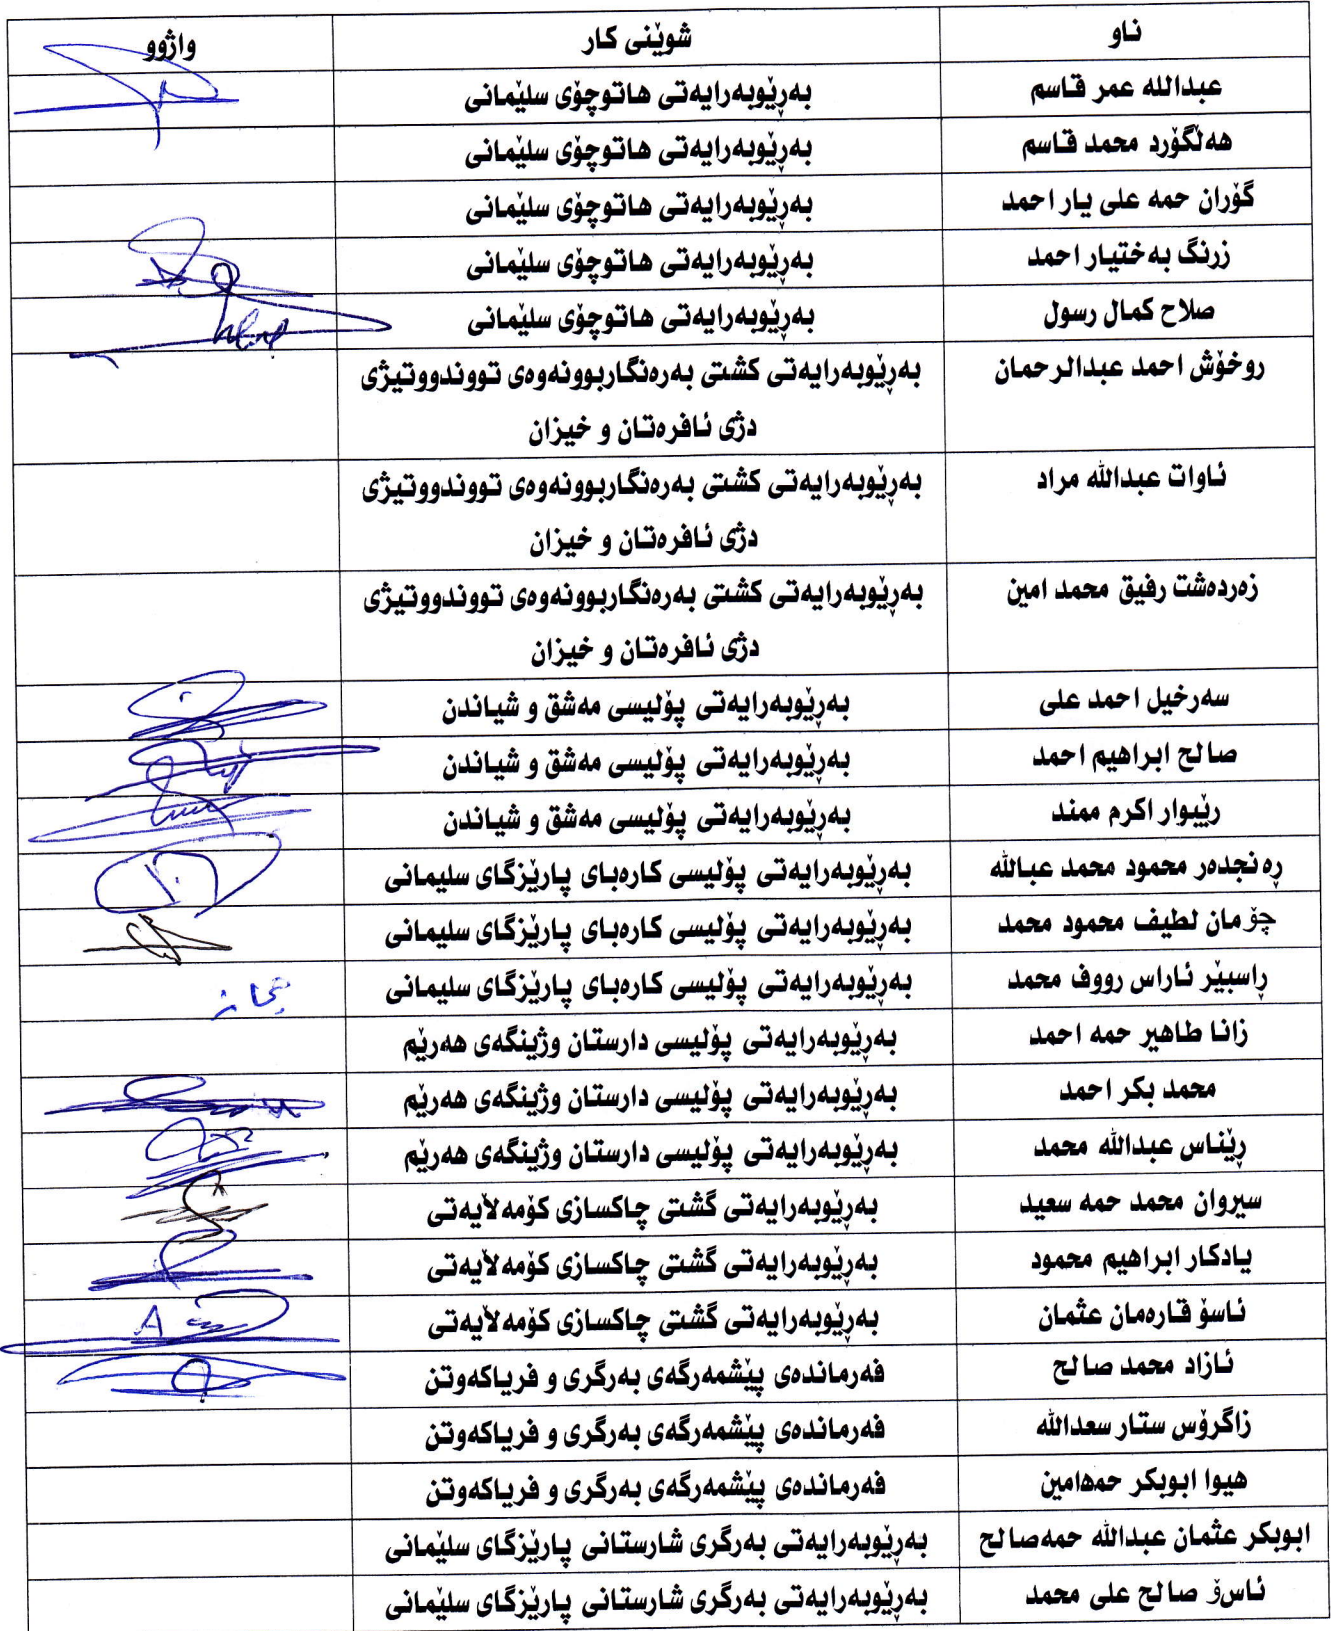 ناو شوێنی کار واژوو
عبدالله عمر قاسم بەڕێوبەرایەتی هاتوچۆی سلێمانی
هەڵگۆرد محمد قاسم بەڕێوبەرایەتی هاتوچۆی سلێمانی
گۆران حمە علی یار احمد بەڕێوبەرایەتی هاتوچۆی سلێمانی
زرنگ بەختیار احمد بەڕێوبەرایەتی هاتوچۆی سلێمانی
صلاح کمال رسول بەڕێوبەرایەتی هاتوچۆی سلێمانی
روخۆش احمد عبدالرحمان بەڕێوبەرایەتی کشتی بەرەنگاربوونەوەی تووندووتیژی
دژی ئافرەتان و خیزان
ئاوات عبدالله مراد بەڕێوبەرایەتی کشتی بەرەنگاربوونەوەی تووندووتیژی
دژی ئافرەتان و خیزان
زەردەشت رفیق محمد امین بەڕێوبەرایەتی کشتی بەرەنگاربوونەوەی تووندووتیژی
دژی ئافرەتان و خیزان
سەرخیل احمد علی بەڕێوبەرایەتی پۆلیسی مەشق و شیاندن
صالح ابراهیم احمد بەڕێوبەرایەتی پۆلیسی مەشق و شیاندن
رێبوار اکرم ممند بەڕێوبەرایەتی پۆلیسی مەشق و شیاندن
ڕەنجدەر محمود محمد عبالله بەڕێوبەرایەتی پۆلیسی کارەبای پارێزگای سلیمانی
چۆمان لطیف محمود محمد بەڕێوبەرایەتی پۆلیسی کارەبای پارێزگای سلیمانی
ڕاسبێر ئاراس رووف محمد بەڕێوبەرایەتی پۆلیسی کارەبای پارێزگای سلیمانی
زانا طاهیر حمە احمد بەڕێوبەرایەتی پۆلیسی دارستان وژینگەی هەرێم
محمد بکر احمد بەڕێوبەرایەتی پۆلیسی دارستان وژینگەی هەرێم
ڕێناس عبدالله محمد بەڕێوبەرایەتی پۆلیسی دارستان وژینگەی هەرێم
سیروان محمد حمە سعید بەڕێوبەرایەتی گشتی چاکسازی کۆمەڵایەتی
یادکار ابراهیم محمود بەڕێوبەرایەتی گشتی چاکسازی کۆمەڵایەتی
ئاسۆ قارەمان عثمان بەڕێوبەرایەتی گشتی چاکسازی کۆمەڵایەتی
ئازاد محمد صالح فەرماندەی پێشمەرگەی بەرگری و فریاکەوتن
زاگرۆس ستار سعدالله فەرماندەی پێشمەرگەی بەرگری و فریاکەوتن
هیوا ابوبکر حمەامین فەرماندەی پێشمەرگەی بەرگری و فریاکەوتن
ابوبکر عثمان عبدالله حمەصالح بەڕێوبەرایەتی بەرگری شارستانی پارێزگای سلێمانی
ئاسۆ صالح علی محمد بەڕێوبەرایەتی بەرگری شارستانی پارێزگای سلێمانی